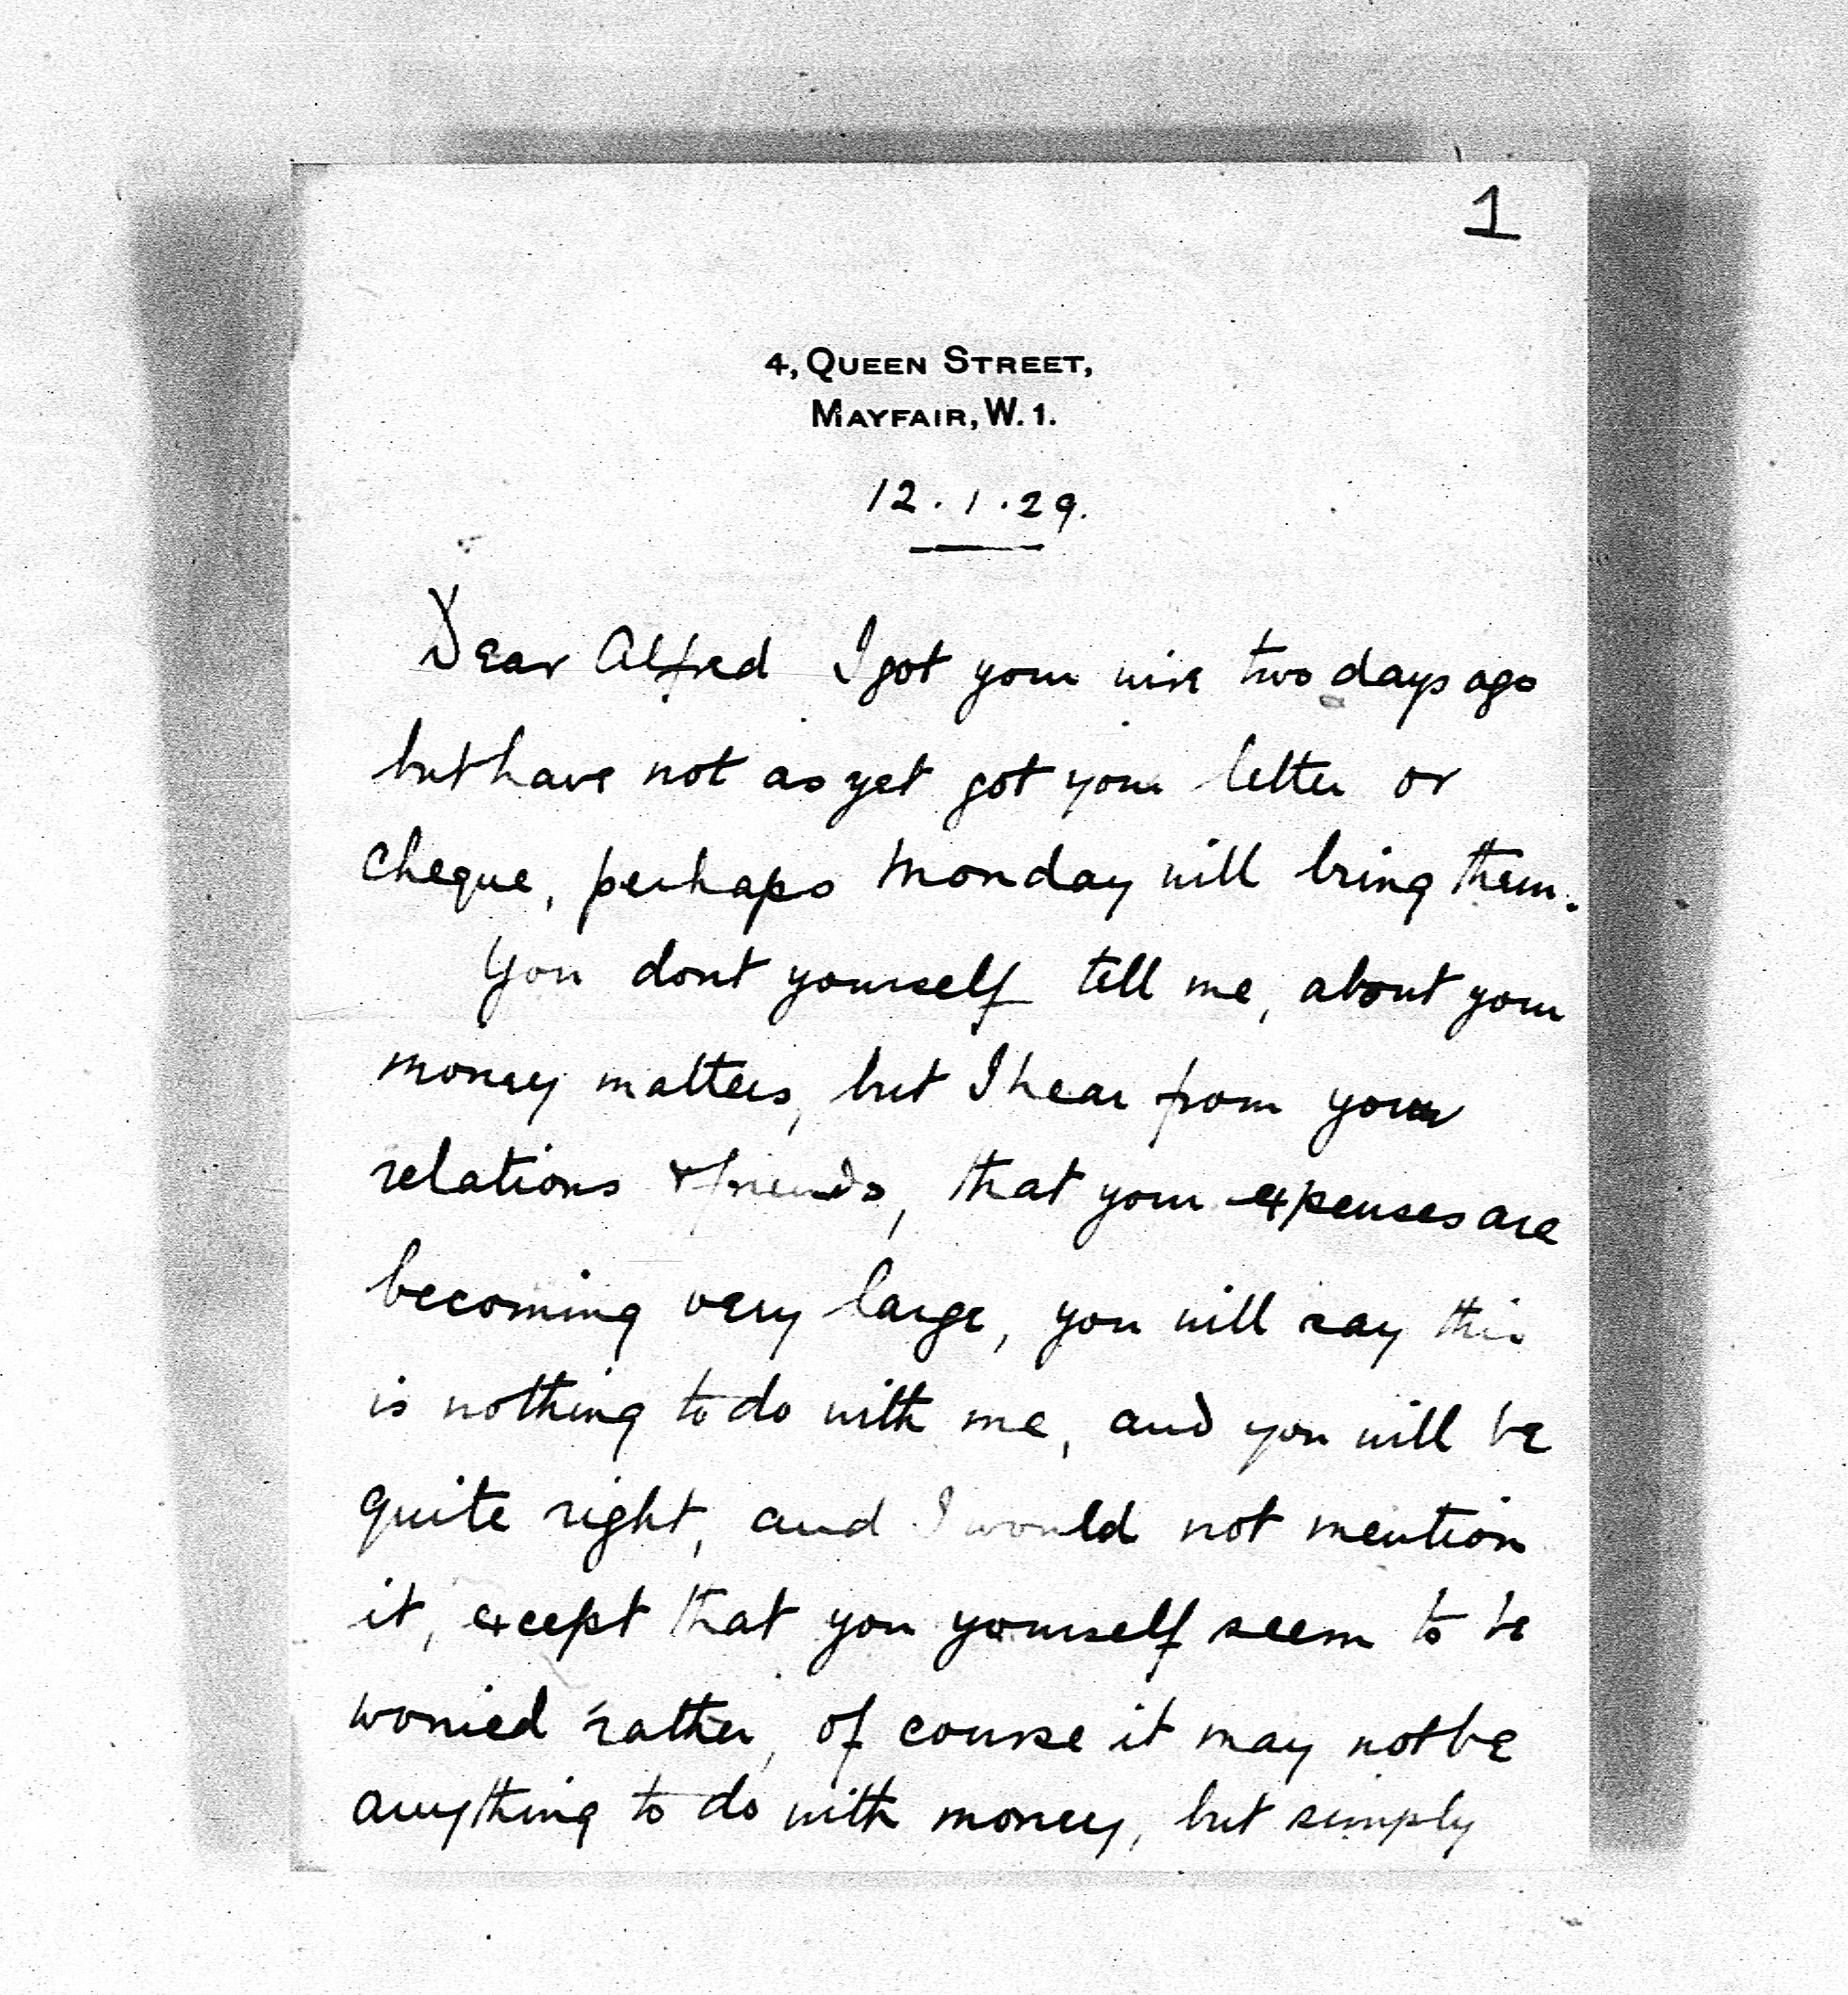 1
4, QUEEN STREET,
MAYFAIR, W. 1.
12.1.29.
Dear Alfred I got your wire two days ago
but have not as yet got your letter or
cheque, perhaps Monday will bring them.
You dont yourself tell me, about your
money matters, but I hear from your
relations & friends, that your expenses are
becoming very large, you will say this
is nothing to do with me, and you will be
quite right, and I would not mention
it, except that you yourself seem to be
worried rather, of course it may not be
anything to do with money, but simply